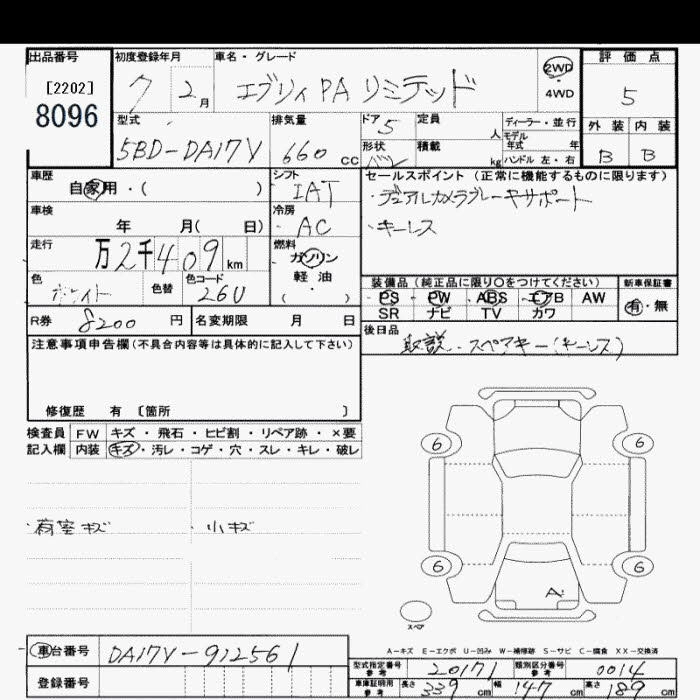 出品番号
[2202]
8096
初度登録年月
7 2月
車名・グレード
エブリィ PA リミテッド
2WD
・
4WD
評価点
5
外装 内装
B B
型式
5BD-DA17V
排気量
660 CC
ドア 5
形状
バン
定員 人
積載 kg
ディーラー・並行
モデル
年式 年
ハンドル 左・右
車歴
自家用・( )
シフト
IAT
セールスポイント (正常に機能するものに限ります)
・デュアルカメラブレーキサポート
・キーレス
車検
年 月( 日)
冷房
AC
走行
万2千409 km
燃料
ガソリン
軽・油
( ・ )
色
ホワイト
色替
色コード
26U
装備品 (純正品に限り〇をつけてください)
PS PW ABS エアB AW
SR ナビ TV カワ
新車保証書
有・無
R券 8200 円
名変期限 月 日
後日品
取説・スペアキー(キーレス)
注意事項申告欄(不具合内容等は具体的に記入して下さい)
修復歴 有 〔箇所 〕
検査員 FW キズ・飛石・ヒビ割・リペア跡・×要
記入欄 内装 キズ・汚レ・コゲ・穴・スレ・キレ・破レ
・荷室キズ ・小キズ
6 6
6 6
A
スペア
A-キズ E-エクボ U-凹み W-補修跡 S-サビ C-腐食 XX-交換済
車台番号 DA17V-912561
登録番号
型式指定番号
参考
20171
類別区分番号
参考
0014
車庫証明用
参考
長さ 339 cm 幅 147 cm 高さ 189 cm